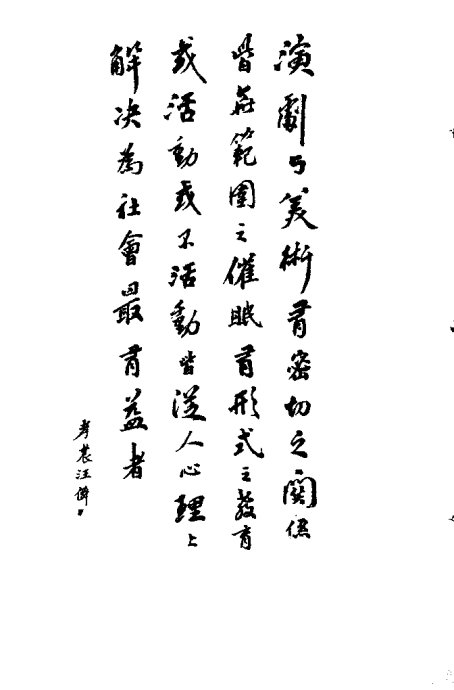 演劇与美術有密切之關係
皆無範圍之催眠有形式之教育
或活動或不活動皆從人心理上
解決為社會最有益者
孝農汪僻